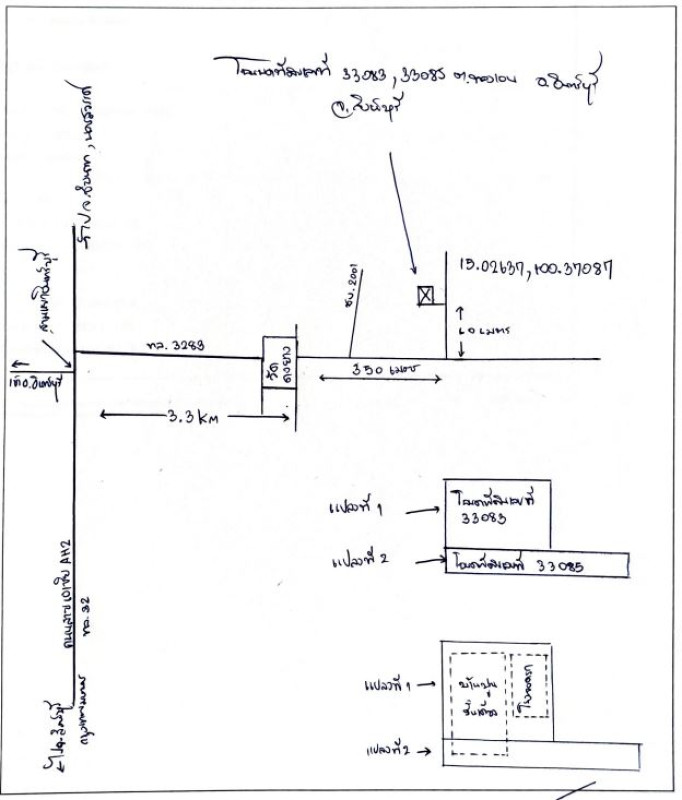 โฉนดที่ดินเลขที่ 33083, 33085 ต.ทองเอน อ.อินทร์บุรี
จ.สิงห์บุรี
ไป จ.ชัยนาท, นครสวรรค์
15.02637, 100.37087
สามแยกอินทร์บุรี
ซบ.2001
60 เมตร
ทล. 3283
วัด
350 เมตร
3.3 KM
แปลงที่ 1
โฉนดที่ดินเลขที่
33083
แปลงที่ 2
โฉนดที่ดินเลขที่ 33085
ถนนสายเอเชีย AH2
ทล. 32
แปลงที่ 1
บ้านปูน
ชั้นเดียว
โรงจอดรถ
แปลงที่ 2
ไป จ.สิงห์บุรี
กรุงเทพมหานคร